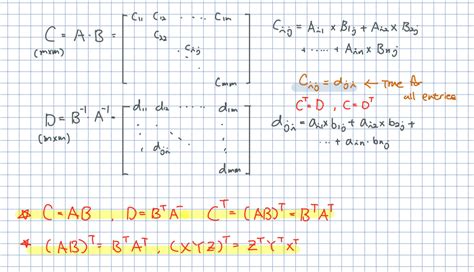 C = A · B = [ C11 C12 ... C1m
(m×m) C22
Cij
Cmm ]
Cij = Ai1 × B1j + Ai2 × B2j
+ ..... + Ain × Bnj
Cij = dji ← True for
all entries
CT = D , C = DT
D = B-1 A-1 = [ d11 d12 ... d1m
(m×m)
dji
dmm ]
dji = ai1 × b1j + ai2 × b2j +
... + ain · bnj
☆ C = AB , D = BTA- CT = (AB)T = BTAT
★ (AB)T = BTAT , (XYZ)T = ZTYTXT